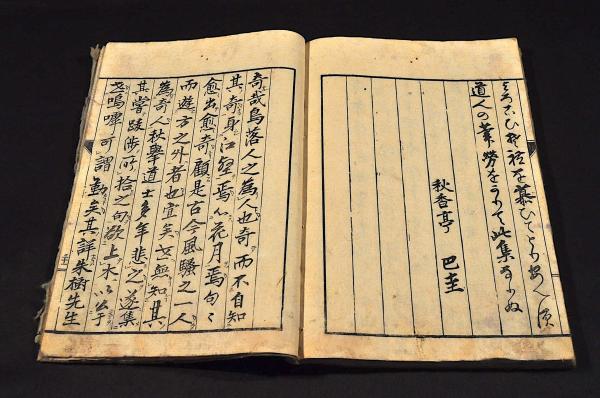 道人の業労をうつて此集なりぬ
秋香亭 巴圭
奇哉鳥落人之為人也奇而不自知
其奇身江望焉心花月焉句々
愈出愈奇顧是古今風騒之一人
而遊方之外者也宜矣世無知其
為奇人秋挙道士多年悲之遂集
其嘗跋渉所拾之句欲上木以公于
世嗚嘑可謂勤矣其詳朱樹先生